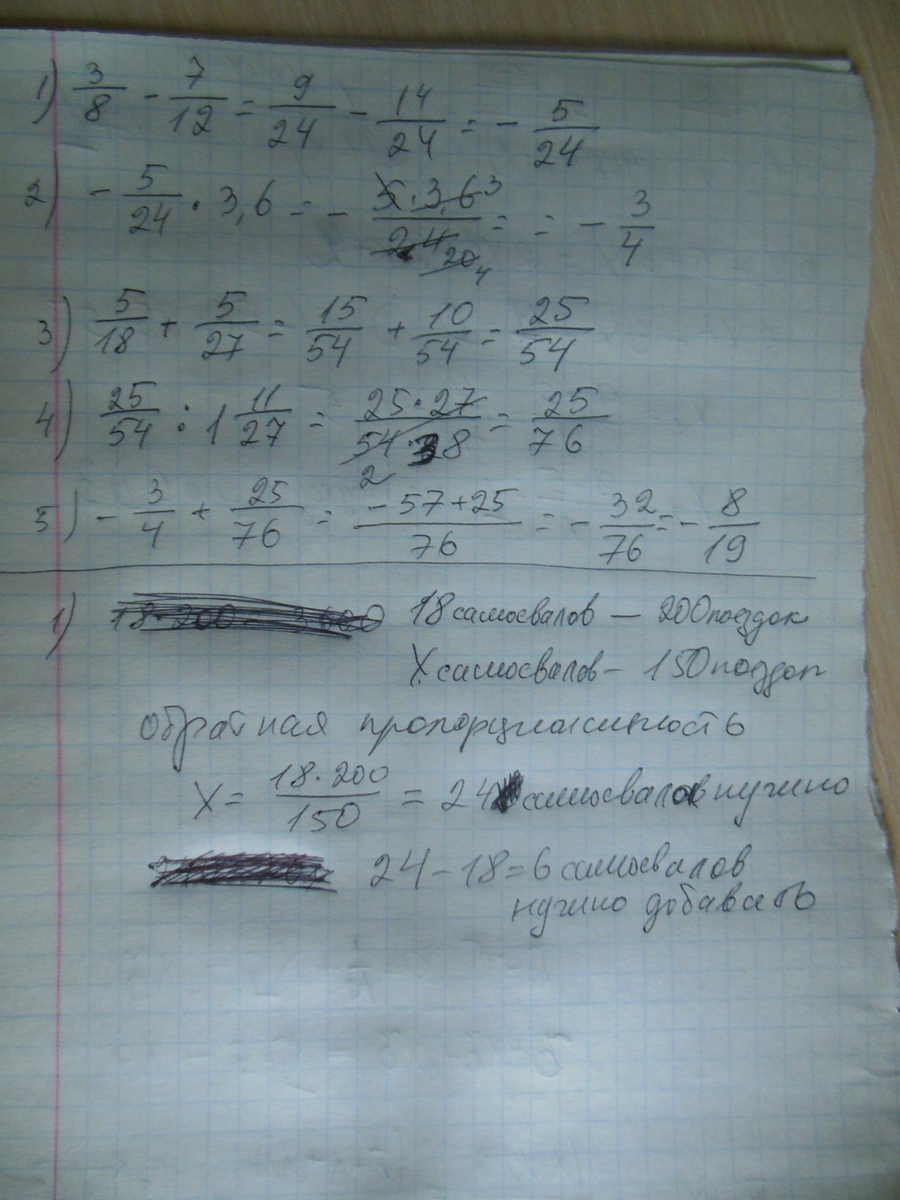 1) 3/8 - 7/12 = 9/24 - 14/24 = - 5/24
2) - 5/24 · 3,6 = - 5·3,6 3/24 20 4 = = - 3/4
3) 5/18 + 5/27 = 15/54 + 10/54 = 25/54
4) 25/54 : 1 11/27 = 25·27/54·38 2 = 25/76
5) - 3/4 + 25/76 = -57+25/76 = - 32/76 = - 8/19
1) 18·200 3600 18 самосвалов — 200 поездок
X самосвалов — 150 поездок
обратная пропорциональность
X = 18·200/150 = 24 самосвалов нужно
24 - 18 = 6 самосвалов
нужно добавить